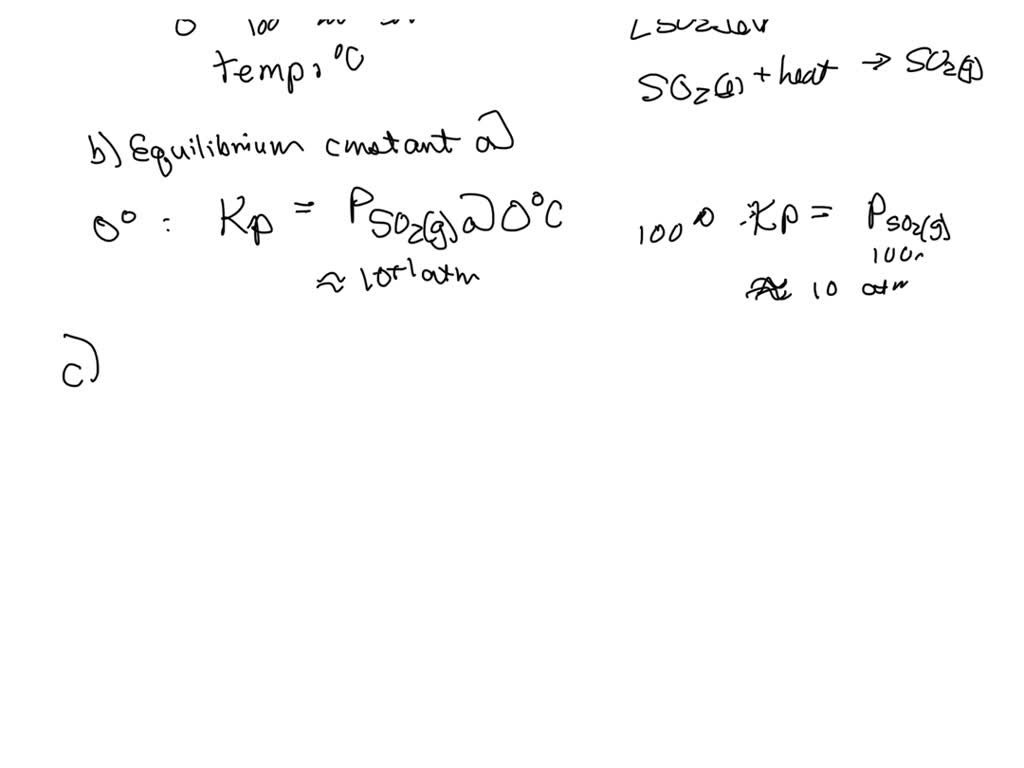 0 100
temp, °C
SO2(l) + heat → SO2(g)
b) Equilibrium cmstant a)
0° : Kp = PSO2(g) a) 0°C
≈ 10+1 atm
100° Kp = PSO2(g)
100
≈ 10 atm
c)